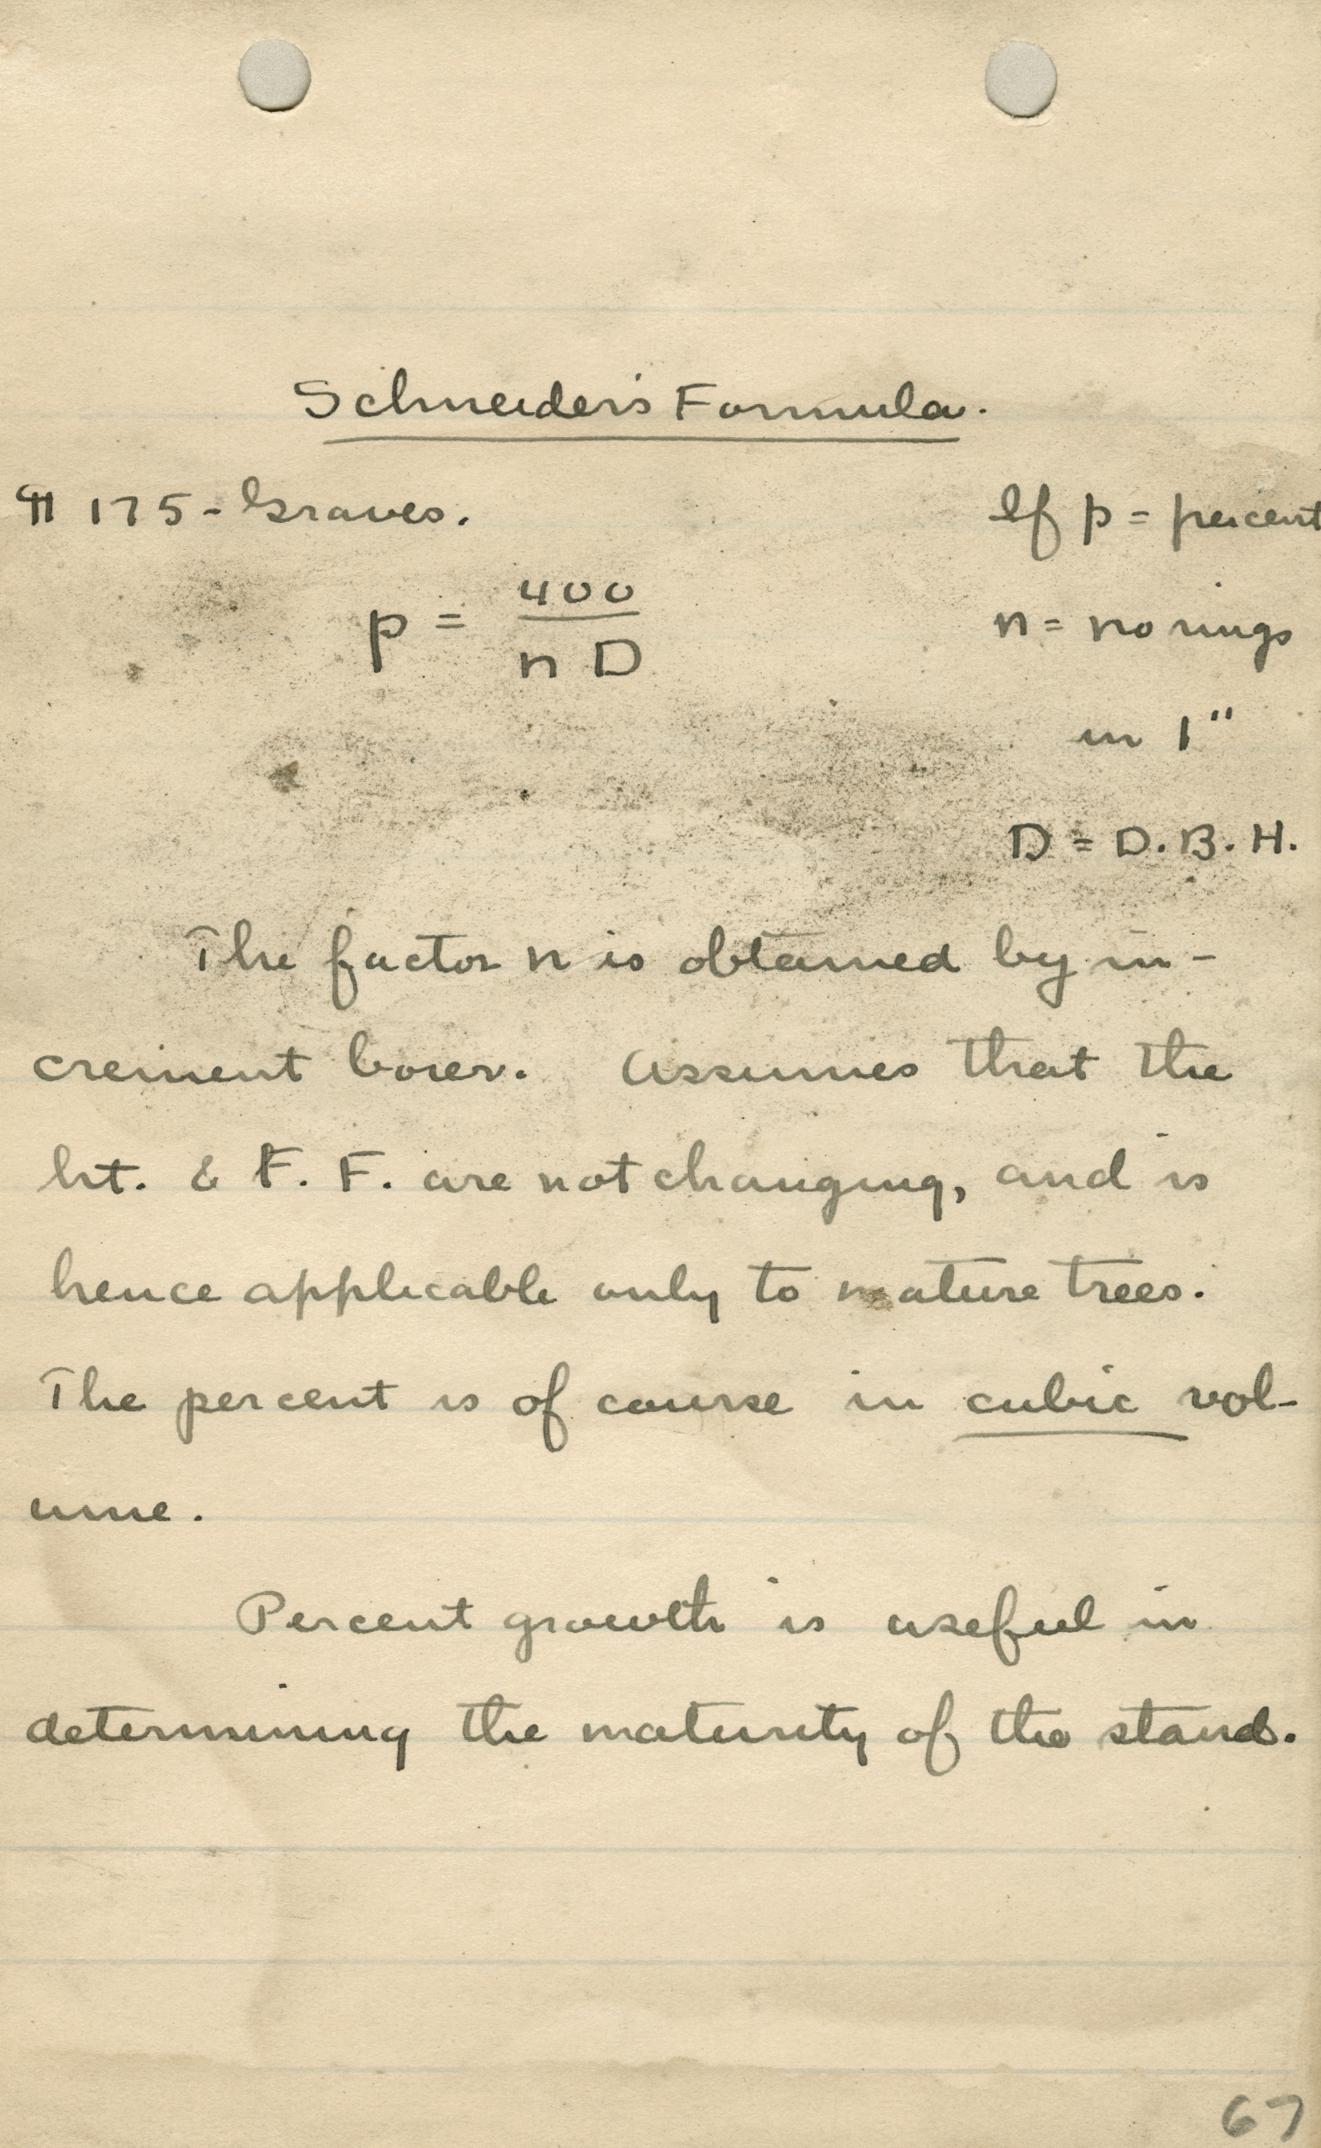 Schneider's Formula.
¶ 175 - Graves.
If p = percent
p = 400
n D
n = no rings
in 1"
D = D.B.H.
The factor n is obtained by in-
crement borer. Assumes that the
ht. & F. F. are not changing, and is
hence applicable only to mature trees.
The percent is of course in cubic vol-
ume.
Percent growth is useful in
determining the maturity of the stand.
67